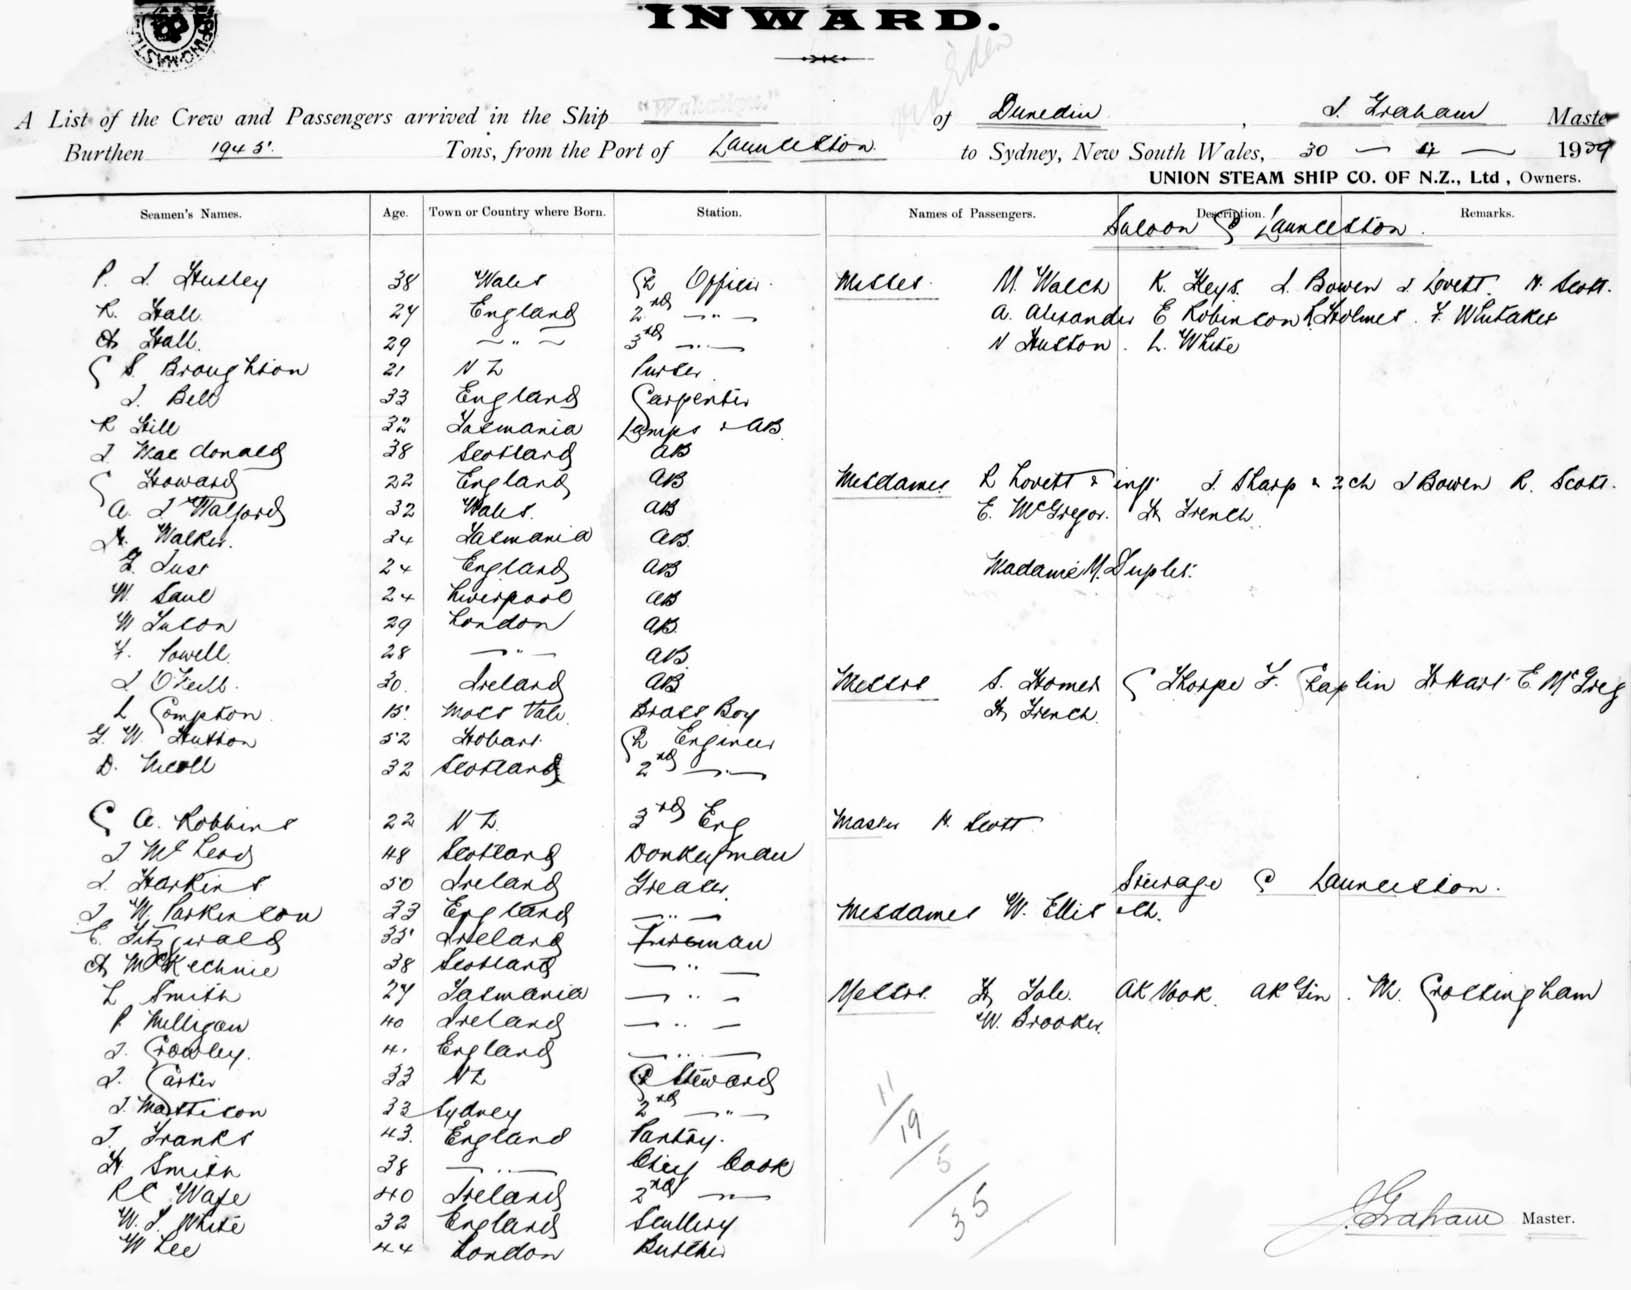 INWARD.
A List of the Crew and Passengers arrived in the Ship "Wakatipu" of Dunedin, J. Graham Master
Burthen 1945 Tons, from the Port of Launceston to Sydney, New South Wales, 30 - 4 - 1909
UNION STEAM SHIP CO. OF N.Z., Ltd, Owners.
Seamen's Names. Age. Town or Country where Born. Station. Names of Passengers. Description. Remarks.
Saloon Launceston.
P. J. 38 Wales Ch Officer. Misses. M. Walch K. Keys. J. Bowen J Lovett. H. Scott.
R. Hall 27 England 2nd — " — A. Alexander E Robinson R. Holmes. F. Whitaker
A Hall. 29 — " — 3rd — " — N Huston. L. White
C S. Broughton 21 N Z Purser.
J. Bell 33 England Carpenter
R Gill 32 Tasmania Lamps & AB
J. Macdonald 38 Scotland AB
C Howard 22 England AB Mesdames R Lovett & inft J. Sharp & 2 ch J Bowen R. Scott.
A. J Walford 32 Wales. AB E. McGregor. H French.
H. Walker. 34 Tasmania AB.
24 England AB Madame M.
W. Saul 24 Liverpool AB
W 29 London AB.
F. Powell. 28 — " — AB.
J O'Neill. 30. Ireland AB Messrs S. Homer C Thorpe F. Chaplin H Hart E. McGreg
L Compton. 15. Moss Vale. Brass Boy H French.
G. W. Hutton 52 Hobart. Ch Engineer
D. Nicoll 32 Scotland 2nd — " —
C A. Robbins 22 N Z. 3rd Eng Master H. Scott
J McLeod 48 Scotland Donkeyman
J. Harkins 50 Ireland Greaser. Steerage Launceston.
J. W. Parkinson 33 England — " — Mesdames W. Ellis & Ch.
E. Fitzgerald 35 Ireland Fireman
A McKechnie 38 Scotland — " —
L Smith 27 Tasmania — " — Messrs. H. AK Nook. AK Gin. M. Crossingham
P. Milligan 40 Ireland — " — W. Brooker.
J. Crowley. 41 England — " —
J. Carter 33 N Z C Steward
J. Mattison 33 Sydney 2nd — " —
J. Franks 43. England Pantry.
H Smith 38 — " — Chief Cook
R C Wafe 40 Ireland 2nd — " —
W. J. White 32 England Scullery
W Lee 44 London Butcher
11
19
5
35
J. Graham Master.